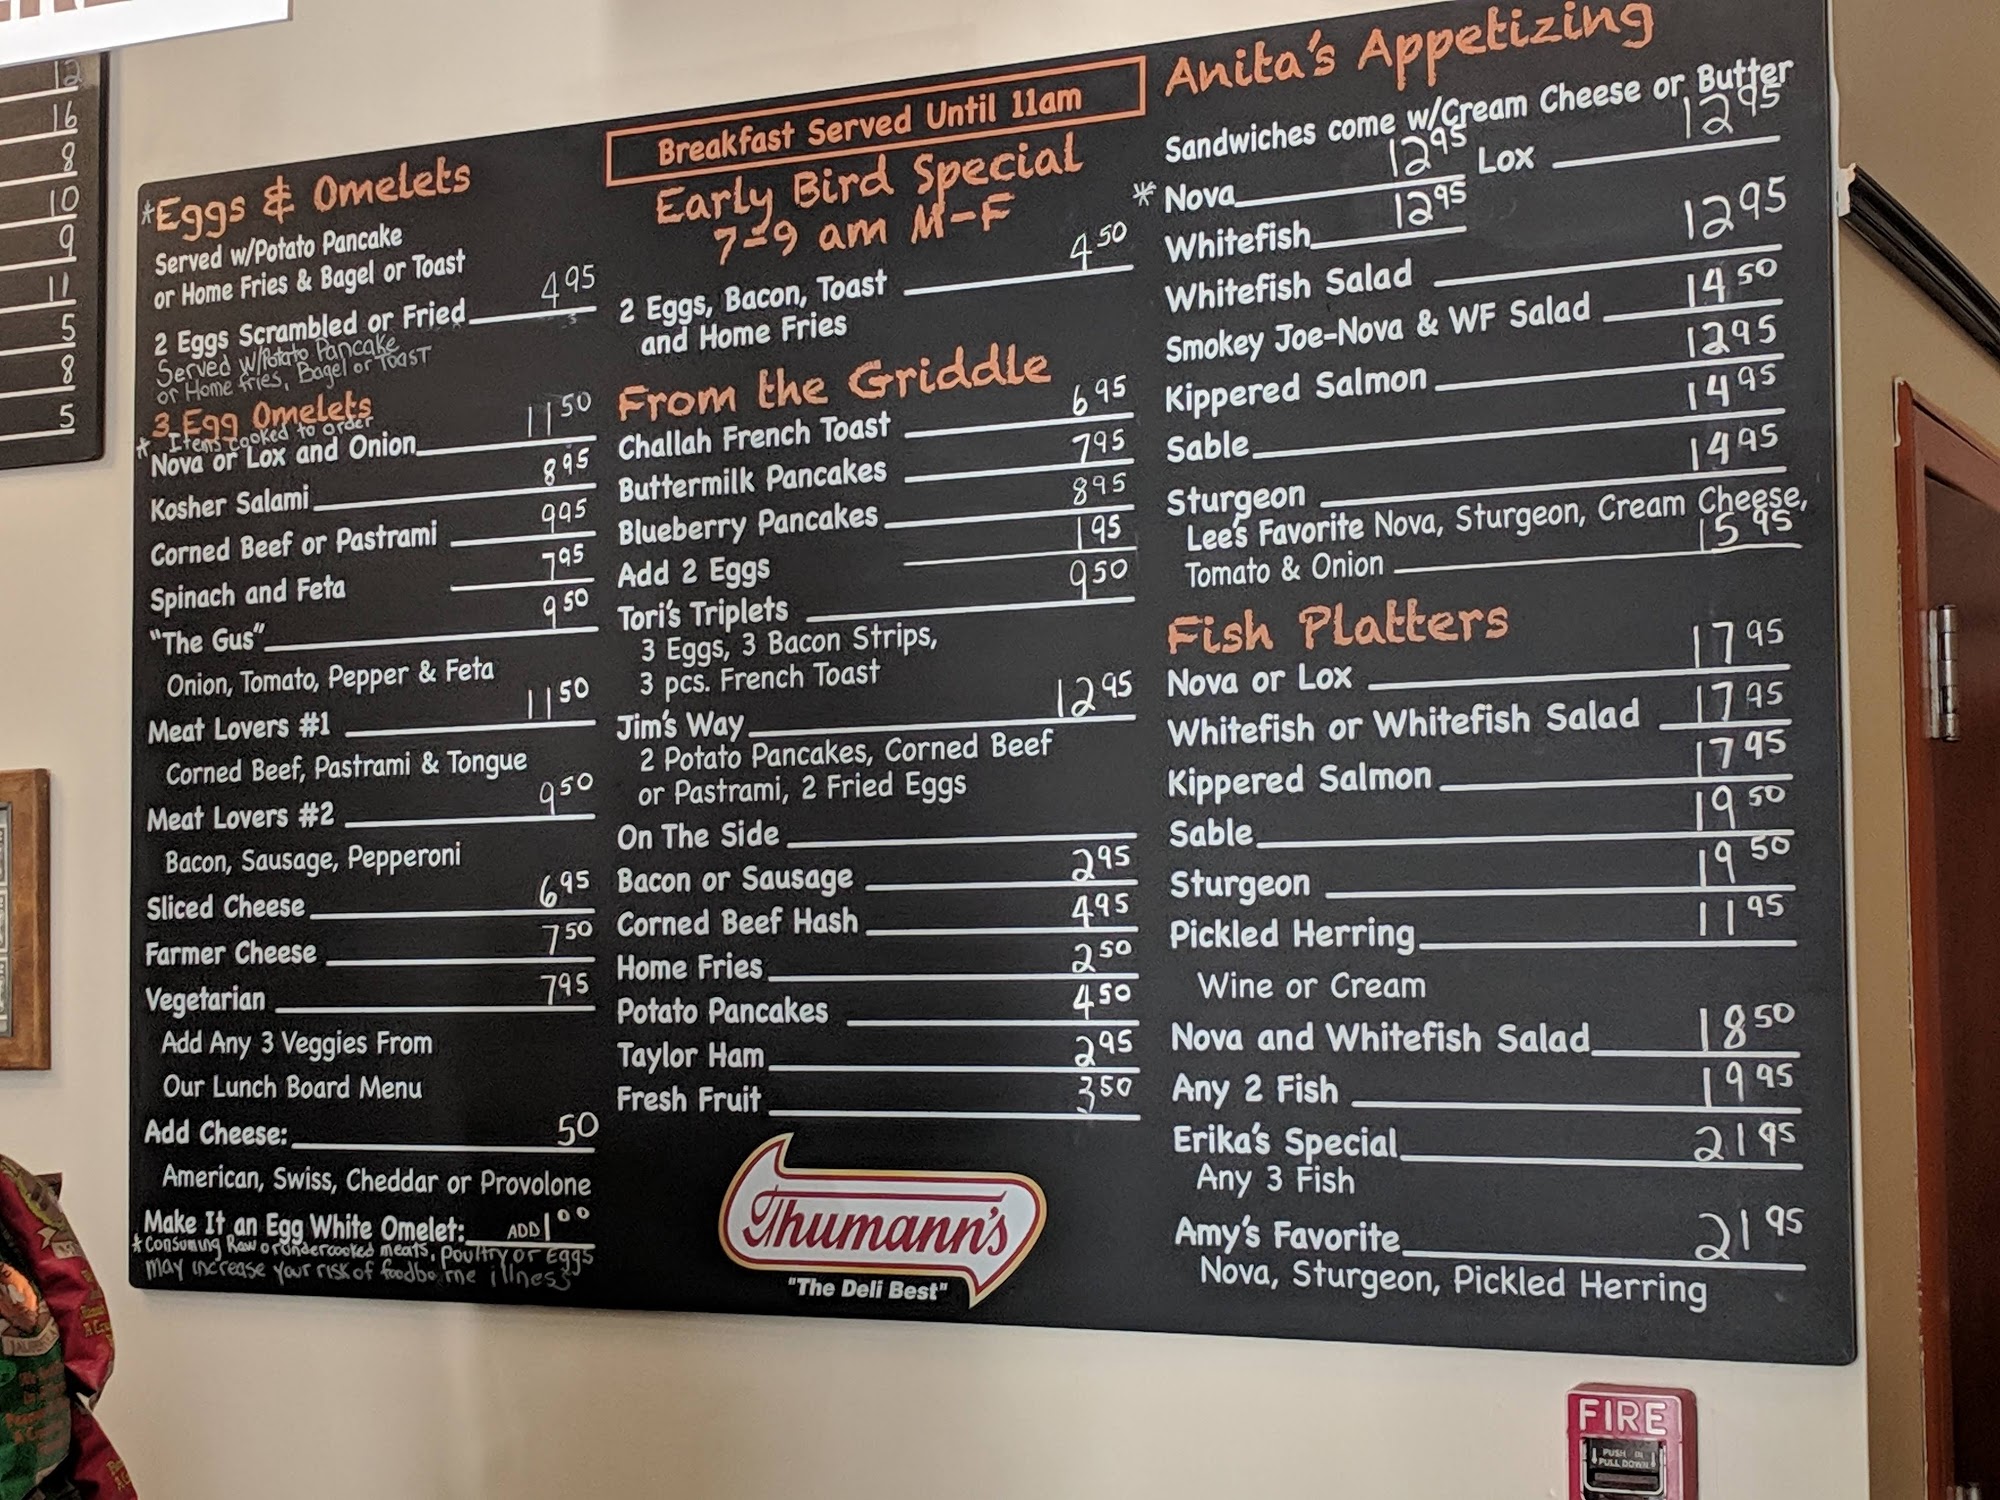 12
16
8
10
9
11
5
8
5
*Eggs & Omelets
Served w/Potato Pancake
or Home Fries & Bagel or Toast
2 Eggs Scrambled or Fried 4 95
Served W/Potato Pancake
or Home fries, Bagel or Toast
3 Egg Omelets
* Items cooked to order
Nova or Lox and Onion 11 50
Kosher Salami 8 95
Corned Beef or Pastrami 9 95
Spinach and Feta 7 95
"The Gus" 9 50
Onion, Tomato, Pepper & Feta
Meat Lovers #1 11 50
Corned Beef, Pastrami & Tongue
Meat Lovers #2 9 50
Bacon, Sausage, Pepperoni
Sliced Cheese 6 95
Farmer Cheese 7 50
Vegetarian 7 95
Add Any 3 Veggies From
Our Lunch Board Menu
Add Cheese: 50
American, Swiss, Cheddar or Provolone
Make It an Egg White Omelet: ADD 1 00
* Consuming Raw or Undercooked meats, poultry or Eggs
may increase your risk of foodborne illness
Breakfast Served Until 11am
Early Bird Special
7-9 am M-F
2 Eggs, Bacon, Toast 4 50
and Home Fries
From the Griddle
Challah French Toast 6 95
Buttermilk Pancakes 7 95
Blueberry Pancakes 8 95
Add 2 Eggs 1 95
Tori's Triplets 9 50
3 Eggs, 3 Bacon Strips,
3 pcs. French Toast
Jim's Way 12 95
2 Potato Pancakes, Corned Beef
or Pastrami, 2 Fried Eggs
On The Side
Bacon or Sausage 2 95
Corned Beef Hash 4 95
Home Fries 2 50
Potato Pancakes 4 50
Taylor Ham 2 95
Fresh Fruit 3 50
Thumann's
"The Deli Best"
Anita's Appetizing
Sandwiches come w/Cream Cheese or Butter
* Nova 12 95 Lox 12 95
Whitefish 12 95
Whitefish Salad 12 95
Smokey Joe-Nova & WF Salad 14 50
Kippered Salmon 12 95
Sable 14 95
Sturgeon 14 95
Lee's Favorite Nova, Sturgeon, Cream Cheese,
Tomato & Onion 15 95
Fish Platters
Nova or Lox 17 95
Whitefish or Whitefish Salad 17 95
Kippered Salmon 17 95
Sable 19 50
Sturgeon 19 50
Pickled Herring 11 95
Wine or Cream
Nova and Whitefish Salad 18 50
Any 2 Fish 19 95
Erika's Special 21 95
Any 3 Fish
Amy's Favorite 21 95
Nova, Sturgeon, Pickled Herring
FIRE
PUSH IN
PULL DOWN